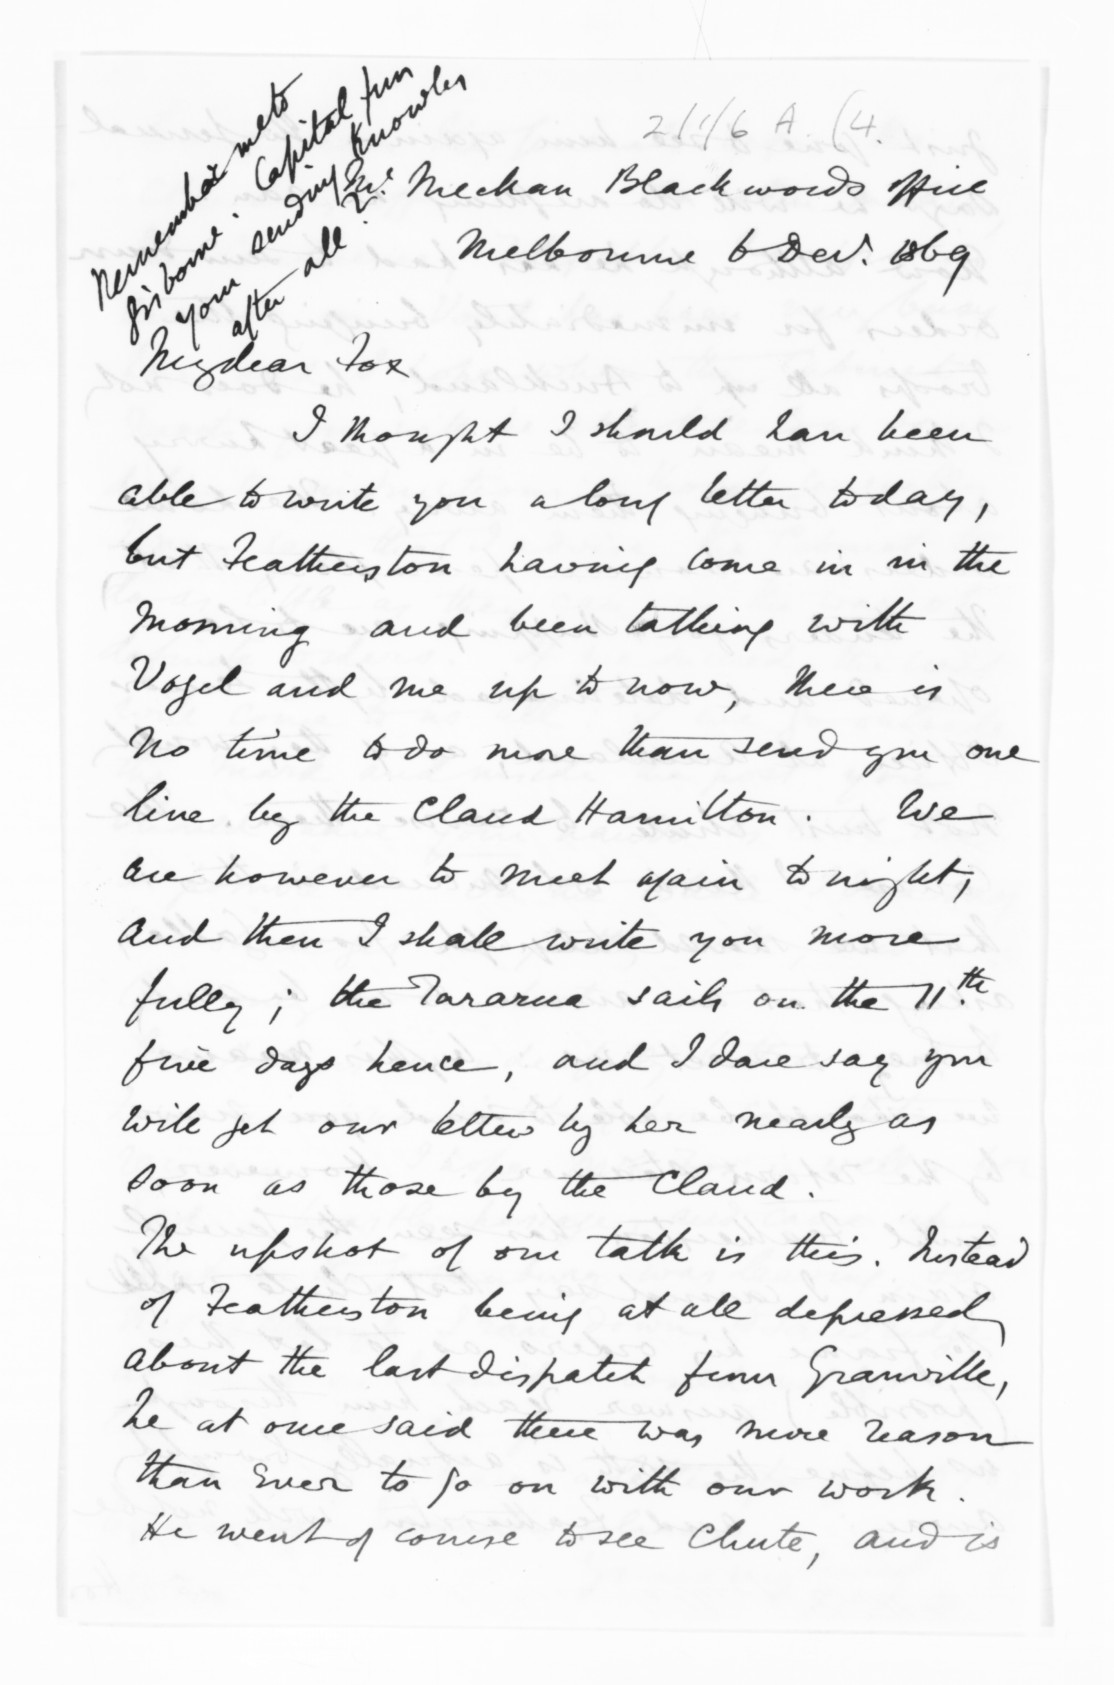 Remember me to
Gisborne. Capital fun
your sending Knowles
after all!
2/1/6 A (4.
McMeckan Blackwoods office
Melbourne 6 Decr. 1869
My dear Fox
I thought I should have been
able to write you a long letter today,
but Featherston having come in in the
morning and been talking with
Vogel and me up to now, there is
no time to do more than send you one
line by the Claud Hamilton. We
are however to meet again tonight,
and then I shall write you more
fully; the Tararua sails on the 11th.
five days hence, and I dare say you
will get our letters by her nearly as
soon as those by the Claud.
The upshot of our talk is this. Instead
of Featherston being at all depressed
about the last dispatch from Granville,
he at once said there was more reason
than ever to go on with our work.
He went of course to see Chute, and is